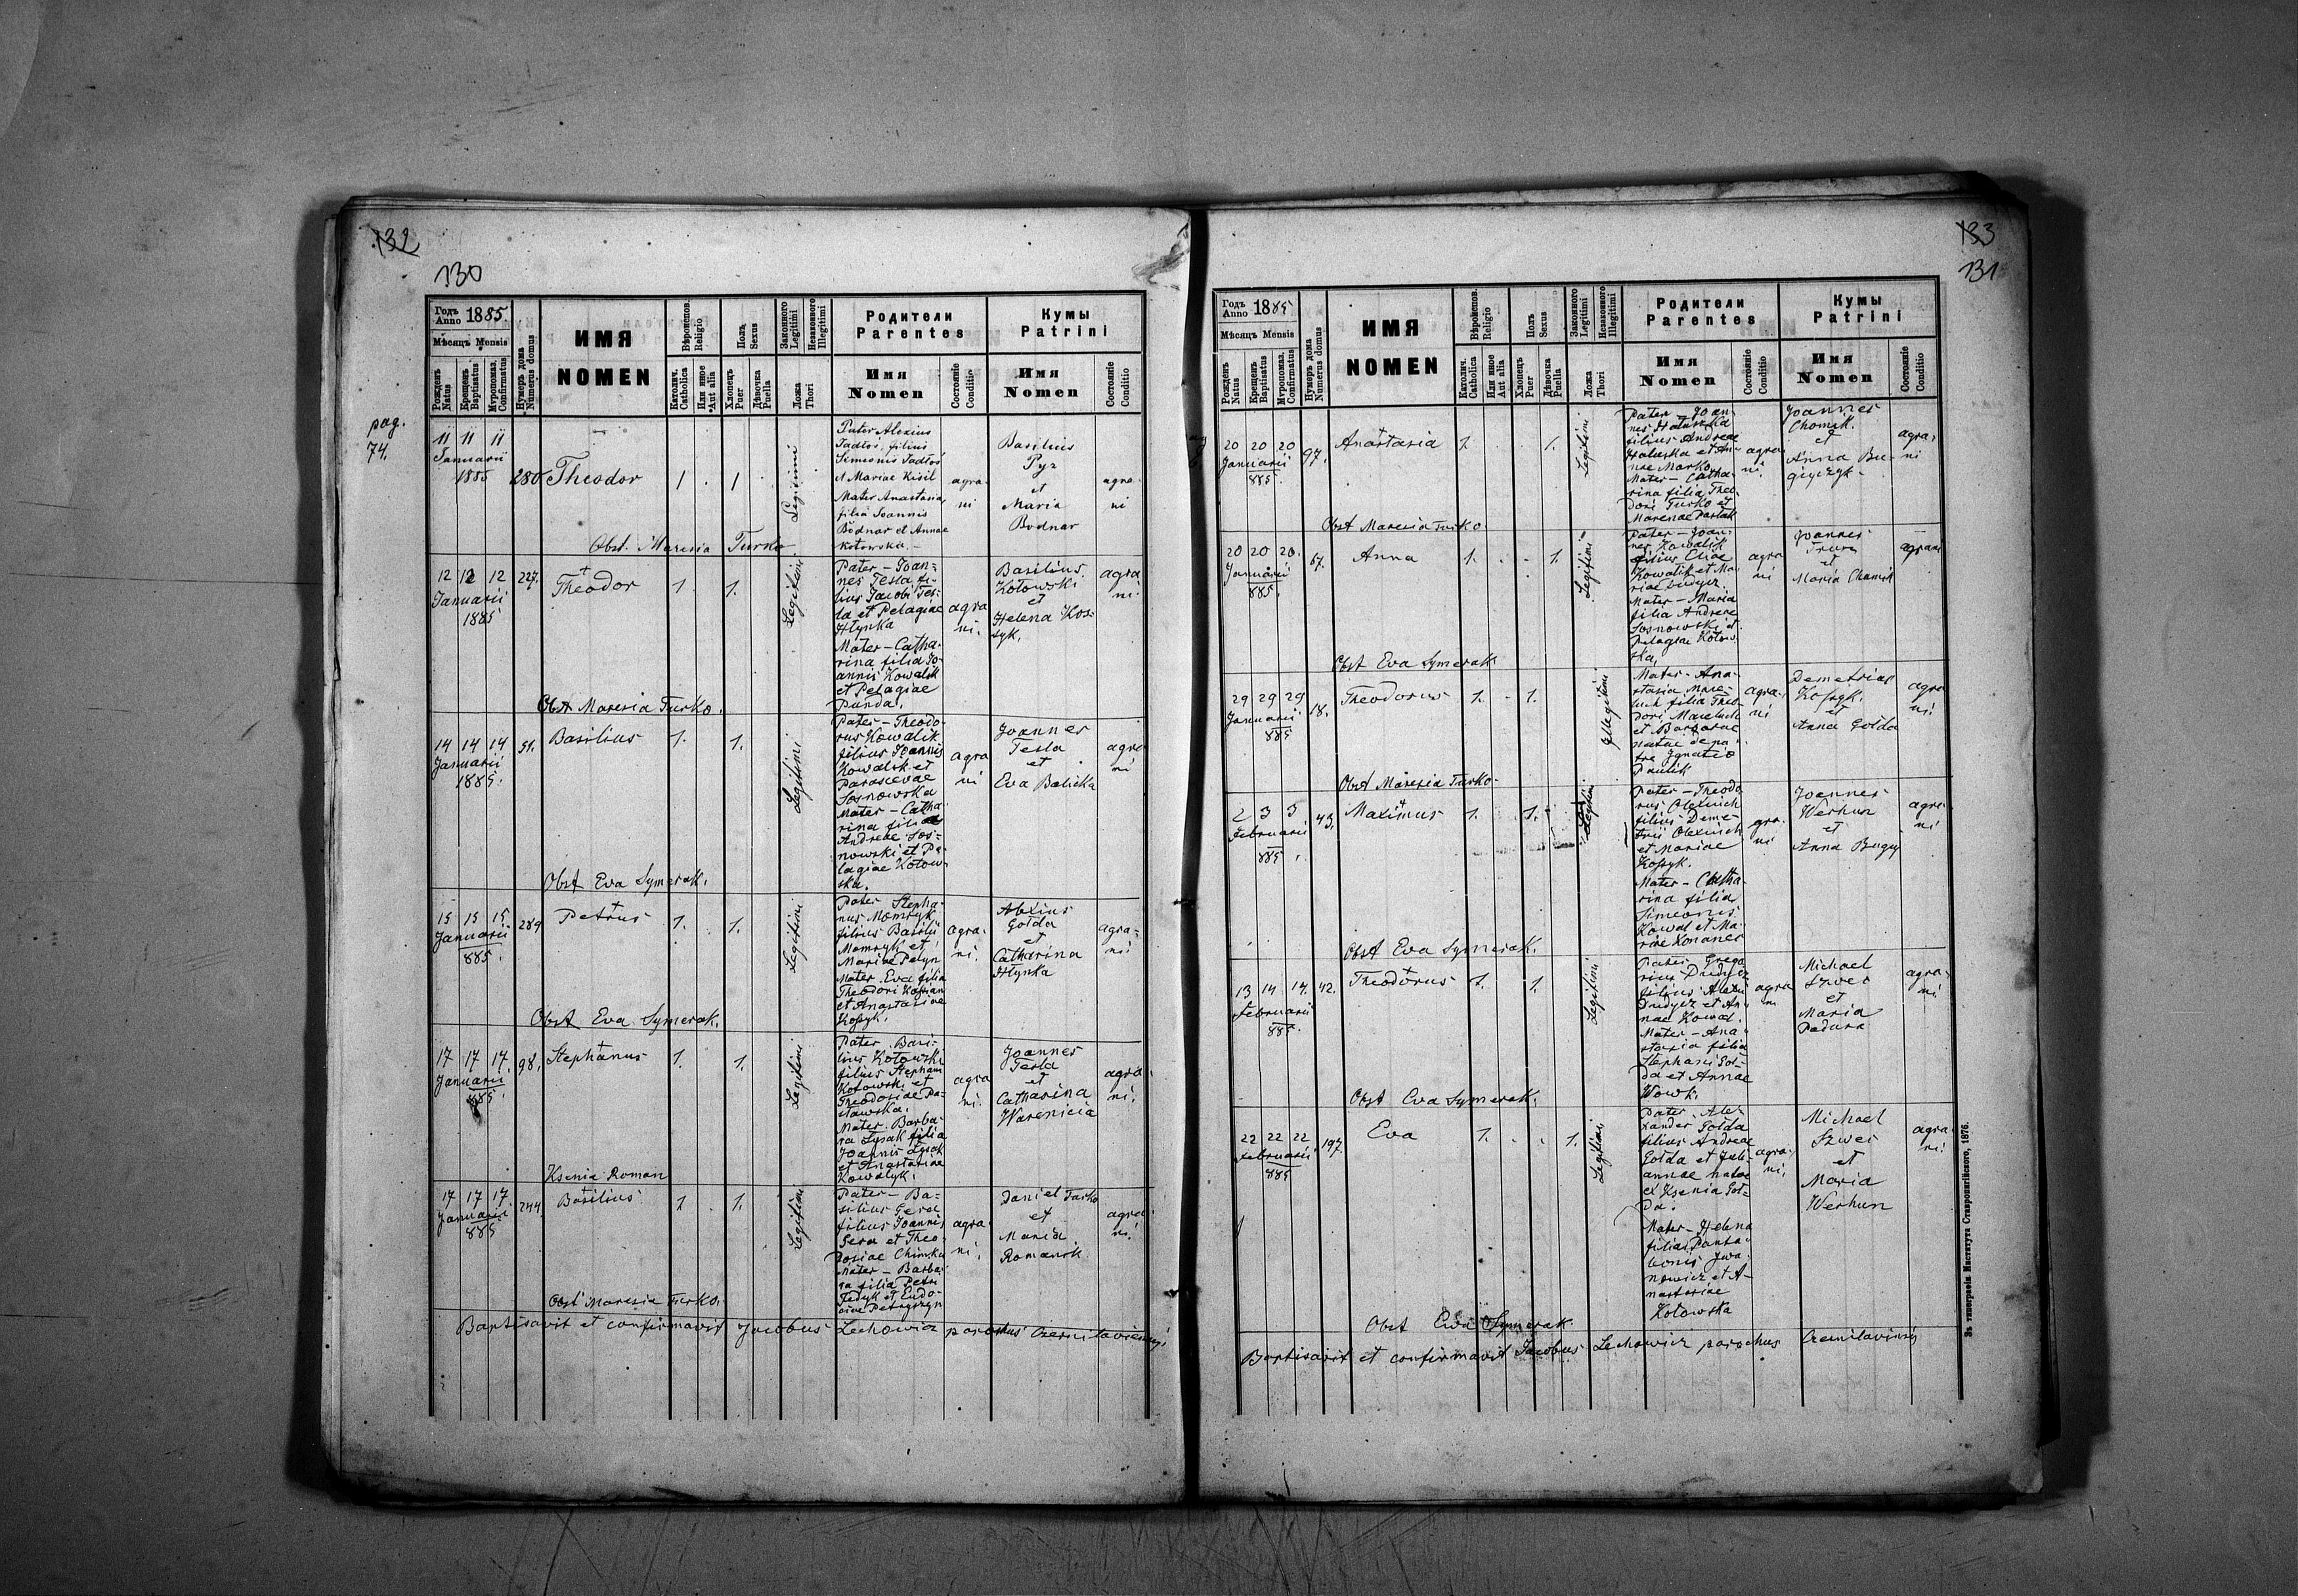 132
130
pag.
74.
Годъ Anno 1885.
Мѣсяцъ Mensis
Рожденъ Natus
Крещенъ Baptisatus
Муропомаз. Confirmatus
Нумеръ дома Numerus domus
ИМЯ
NOMEN
Вѣроисповѣд. Religio
Католич. Catholica
Или иное Aut alia
Полъ Sexus
Хлопецъ Puer
Дѣвочка Puella
Законного Legitimi
Незаконного Illegitimi
Ложа Thori
Родители
Parentes
Имя
Nomen
Состояніе Conditio
Кумы
Patrini
Имя
Nomen
Состояніе Conditio
11 11 11
Januarii
1885
280
Theodor
1 . 1 .
Legitimi
Pater Alexius
Tadloś, filius
Simeonis Tadloś
et Mariae Kisil
Mater Anastasia
filia Joannis
Bodnar et Annae
Kotowska.-
agra
ni
Basilius
Pyz
et
Maria
Bodnar
agra
ni
Obst. Maresia Turko
12 12 12
Januarii
1885
227.
Theodor
1. 1.
Legitimi
Pater - Joan-
nes Tesla fi-
lius Jacobi Tes-
la et Pelagiae
Hlynka
Mater - Catha-
rina filia Jo-
annis Kowalik
et Pelagiae
Panda.
agra
ni.
Basilius
Kotowski
et
Helena Kos-
syk.
agra
ni.
Obst Maresia Turko.
14 14 14
Januarii
1885.
51.
Basilius
1. 1.
Legitimi
Pater - Theodo-
rus Kowalik
filius Joannis
Kowalik et
Parascevae
Sosnowska
Mater - Catha-
rina filia
Andreae Sos-
nowski et Pe-
lagiae Kotow-
ska.
agra
ni
Joannes
Tesla
et
Eva Balicka
agra
ni
Obst Eva Symerak.
15 15 15
Januarii
885.
289
Petrus
1. 1.
Legitimi
Pater Stepha-
nus Momryk
filius Basilii
Momryk et
Mariae Pelyn
Mater Eva filia
Theodori
et Anastasiae
Kossyk.
agra-
ni.
Alexius
Gołda
et
Catharina
Hlynka
agra-
ni
Obst Eva Symerak.
17 17 17.
Januarii
885.
98.
Stephanus
1. 1.
Legitimi
Pater Basi-
lius Kotowski
filius Stephani
Kotowski et
Theodosiae Pa-
sławska.
Mater. Barba-
ra Lysak filia
Joannis Lysak
et Anastasiae
Kowalyk.
agra
ni.
Joannes
Tesla
et
Catharina
Warenicia
agra
ni.
Ksenia Roman
17 17 17.
Januarii
885
244.
Basilius
1 . 1.
Legitimi
Pater - Ba-
silius Gera
filius Joannis
Gera et Theo-
dosiae Chimka
Mater - Barba-
ra filia Petri
Fedyk et Eudo-
ciae Petryszyn
agra-
ni.
Daniel Turko
et
Maria
Romanik
agra
ni.
Obst Maresia Turko.
Baptisavit et confirmavit Jacobus Lechowicz parochus Czernilaviensis
133
131
Годъ Anno 1885
Мѣсяцъ Mensis
Рожденъ Natus
Крещенъ Baptisatus
Муропомаз. Confirmatus
Нумеръ дома Numerus domus
ИМЯ
NOMEN
Вѣроисповѣд. Religio
Католич. Catholica
Или иное Aut alia
Полъ Sexus
Хлопецъ Puer
Дѣвочка Puella
Законного Legitimi
Незаконного Illegitimi
Ложа Thori
Родители
Parentes
Имя
Nomen
Состояніе Conditio
Кумы
Patrini
Имя
Nomen
Состояніе Conditio
20 20 20
Januarii
885.
97.
Anastasia
1. . . 1.
Legitimi
Pater - Joan-
nes Haluszka
filius Andreae
Haluska et An-
nae Marko
Mater - Catha-
rina filia Theo-
dori Turko et
Marenae
agra-
ni.
Joannes
Chomik.
et
Anna Bu-
giyczyk -
agra-
ni
Obst Maresia Turko
20 20 20.
Januarii
885.
67.
Anna
1. . . 1.
Legitimi
Pater - Joan-
nes Kowalik
filius Eliae
Kowalik et Ma-
riae Dudycz.
Mater - Maria
filia Andreae
Sosnowski et
Pelagiae Kotow-
ska.
agra
ni
Joannes
et
Maria Chomik
agrani
Obst Eva Symerak
29 29 29
Januarii
885
18.
Theodorus
1. . 1.
Illegitimi
Mater - Ana-
stasia Mare-
luch filia Theo-
dori Mareluch
et Barbarae
natae de pa-
tre Ignatio
Paulik
agra-
ni
Demetrius
Kossyk.
et
Anna Gołda
agra
ni.
Obst Maresia Turko-
2 3 5
februarii
885.
43.
Maximus
1. 1.
Legitimi
Pater - Theodo-
rus Olexiuch
filius Deme-
trii Olexiuch
et Mariae
Kossyk.
Mater - Catha-
rina filia
Simeonis
Kowal et Ma-
riae Konanec
gra-
ni
Joannes
Werhun
et
Anna Bugiy
agra-
ni
Obst Eva Symerak.
13 14 14.
februarii
885.
42.
Theodorus
1. 1.
Legitimi
Pater Grego-
rius Dudycz
filius Alexii
Dudycz et An-
nae Kowal.
Mater - Ana-
stasia filia
Stephani Goł-
da et Annae
Wowk.
agra
ni
Michael
Szwec
et
Maria
Padura
agra-
ni.
Obst Eva Symerak.
22 22 22
februarii
885
197.
Eva
1. . . 1.
Legitimi
Pater - Ale-
xander Gołda
filius Andreae
Gołda et Juli-
annae natae
ex Ksenia Goł-
da.
Mater - Helena
filia Panta-
leonis Iwa-
nowicz et A-
nastasiae
Kotowska
agra-
ni.
Michael
Szwec
et
Maria
Werhun
agra-
ni.
Obst Ewa Symerak
Baptisavit et confirmavit Jacobus Lechowicz parochus Czernilaviensis
Зъ типографіи Института Ставропигійского, 1876.